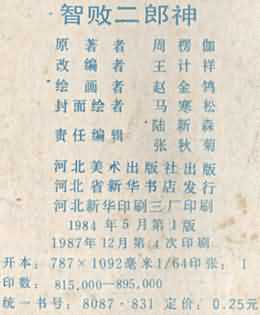 智败二郎神
原著者 周楞伽
改编者 王计祥
绘画者 赵金鸽
封面绘者 马寒松
责任编辑 陆新森
张秋菊
河北美术出版社出版
河北省新华书店发行
河北新华印刷三厂印刷
1984年5月第1版
1987年12月第4次印刷
开本：787×1092毫米1/64印张：1
印数：815,000—895,000
统一书号：8087·831 定价：0.25元